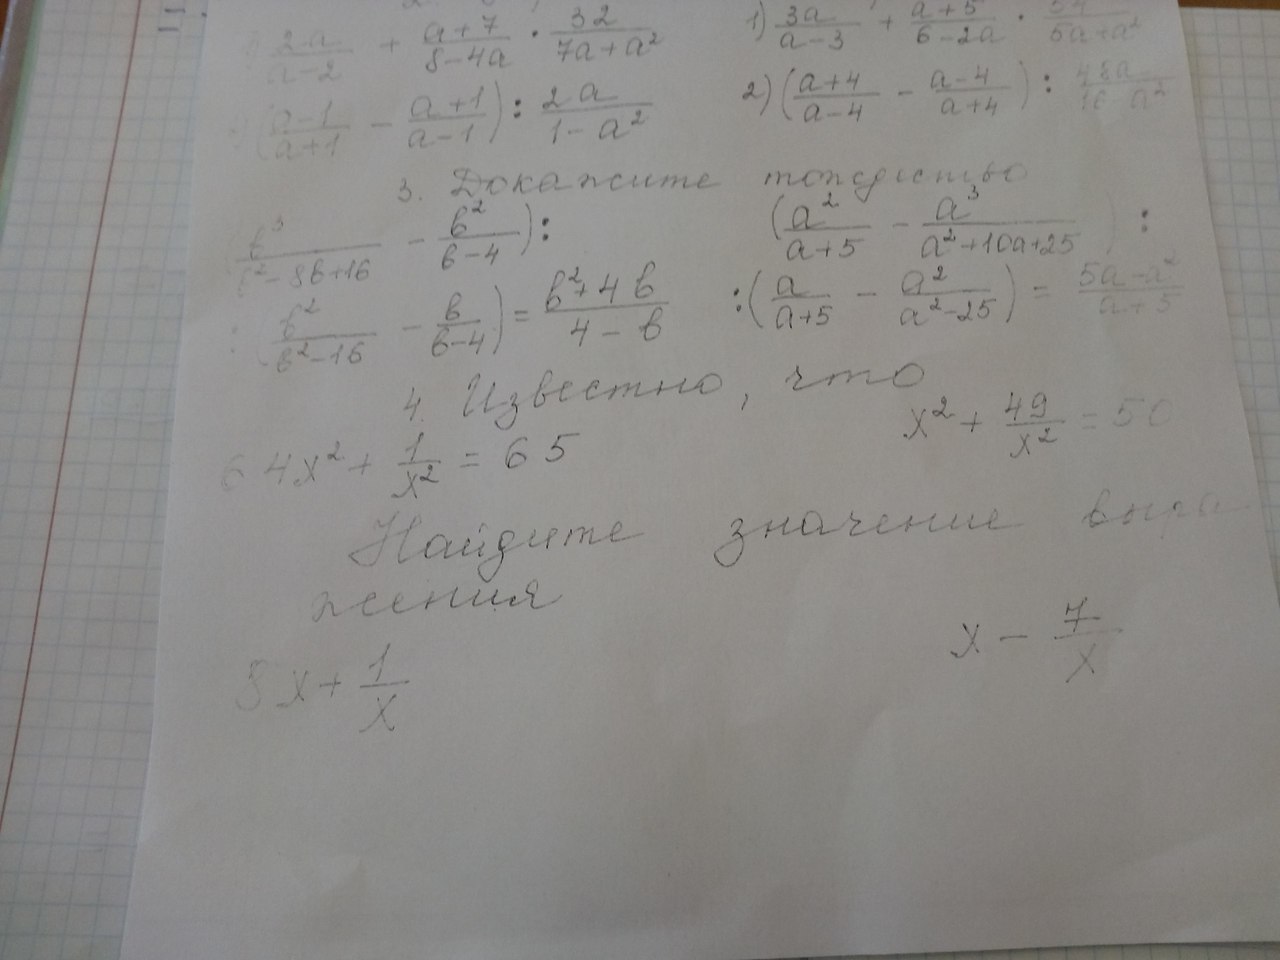 2a/(a-2) + (a+7)/(8-4a) · 32/(7a+a²)
1) 3a/(a-3) + (a+5)/(6-2a) · 54/(5a+a²)
((a-1)/(a+1) - (a+1)/(a-1)) : 2a/(1-a²)
2) ((a+4)/(a-4) - (a-4)/(a+4)) : 48a/(16-a²)
3. Докажите тождество
b³/(b²-8b+16) - b²/(b-4)) :
(a²/(a+5) - a³/(a²+10a+25)) :
: (b²/(b²-16) - b/(b-4)) = (b²+4b)/(4-b)
: (a/(a+5) - a²/(a²-25)) = (5a-a²)/(a+5)
4. Известно, что
64x² + 1/x² = 65
x² + 49/x² = 50
Найдите значение выра
жения
8x + 1/x
x - 7/x